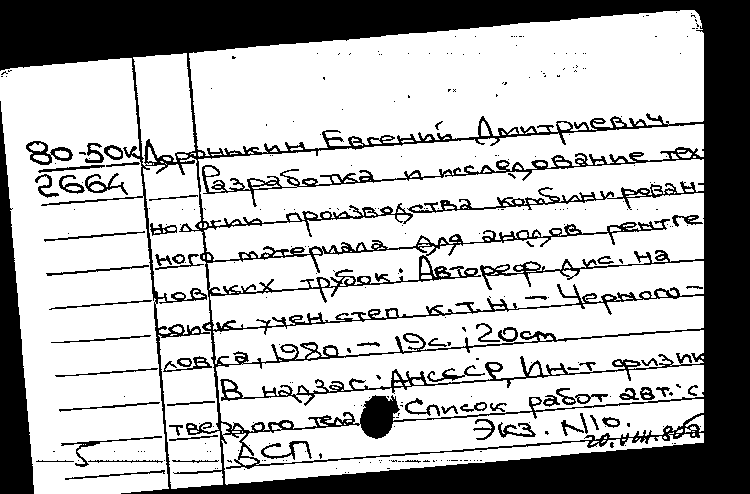 80-50к Доронькин, Евгений Дмитриевич.
2664 Разработка и исследование тех-
нологии производства комбинирован-
ного материала для анодов рентге
новских трубок: Автореф. дис. на
соиск. учен. степ. к.т.н. – Черного-
ловка, 1980. – 19с.; 20см.
В надзаг.: АНСССР, Ин-т физик
твердого тела Список работ авт.: с.
Экз. N10.
5 ДСП.
20.VIII.80